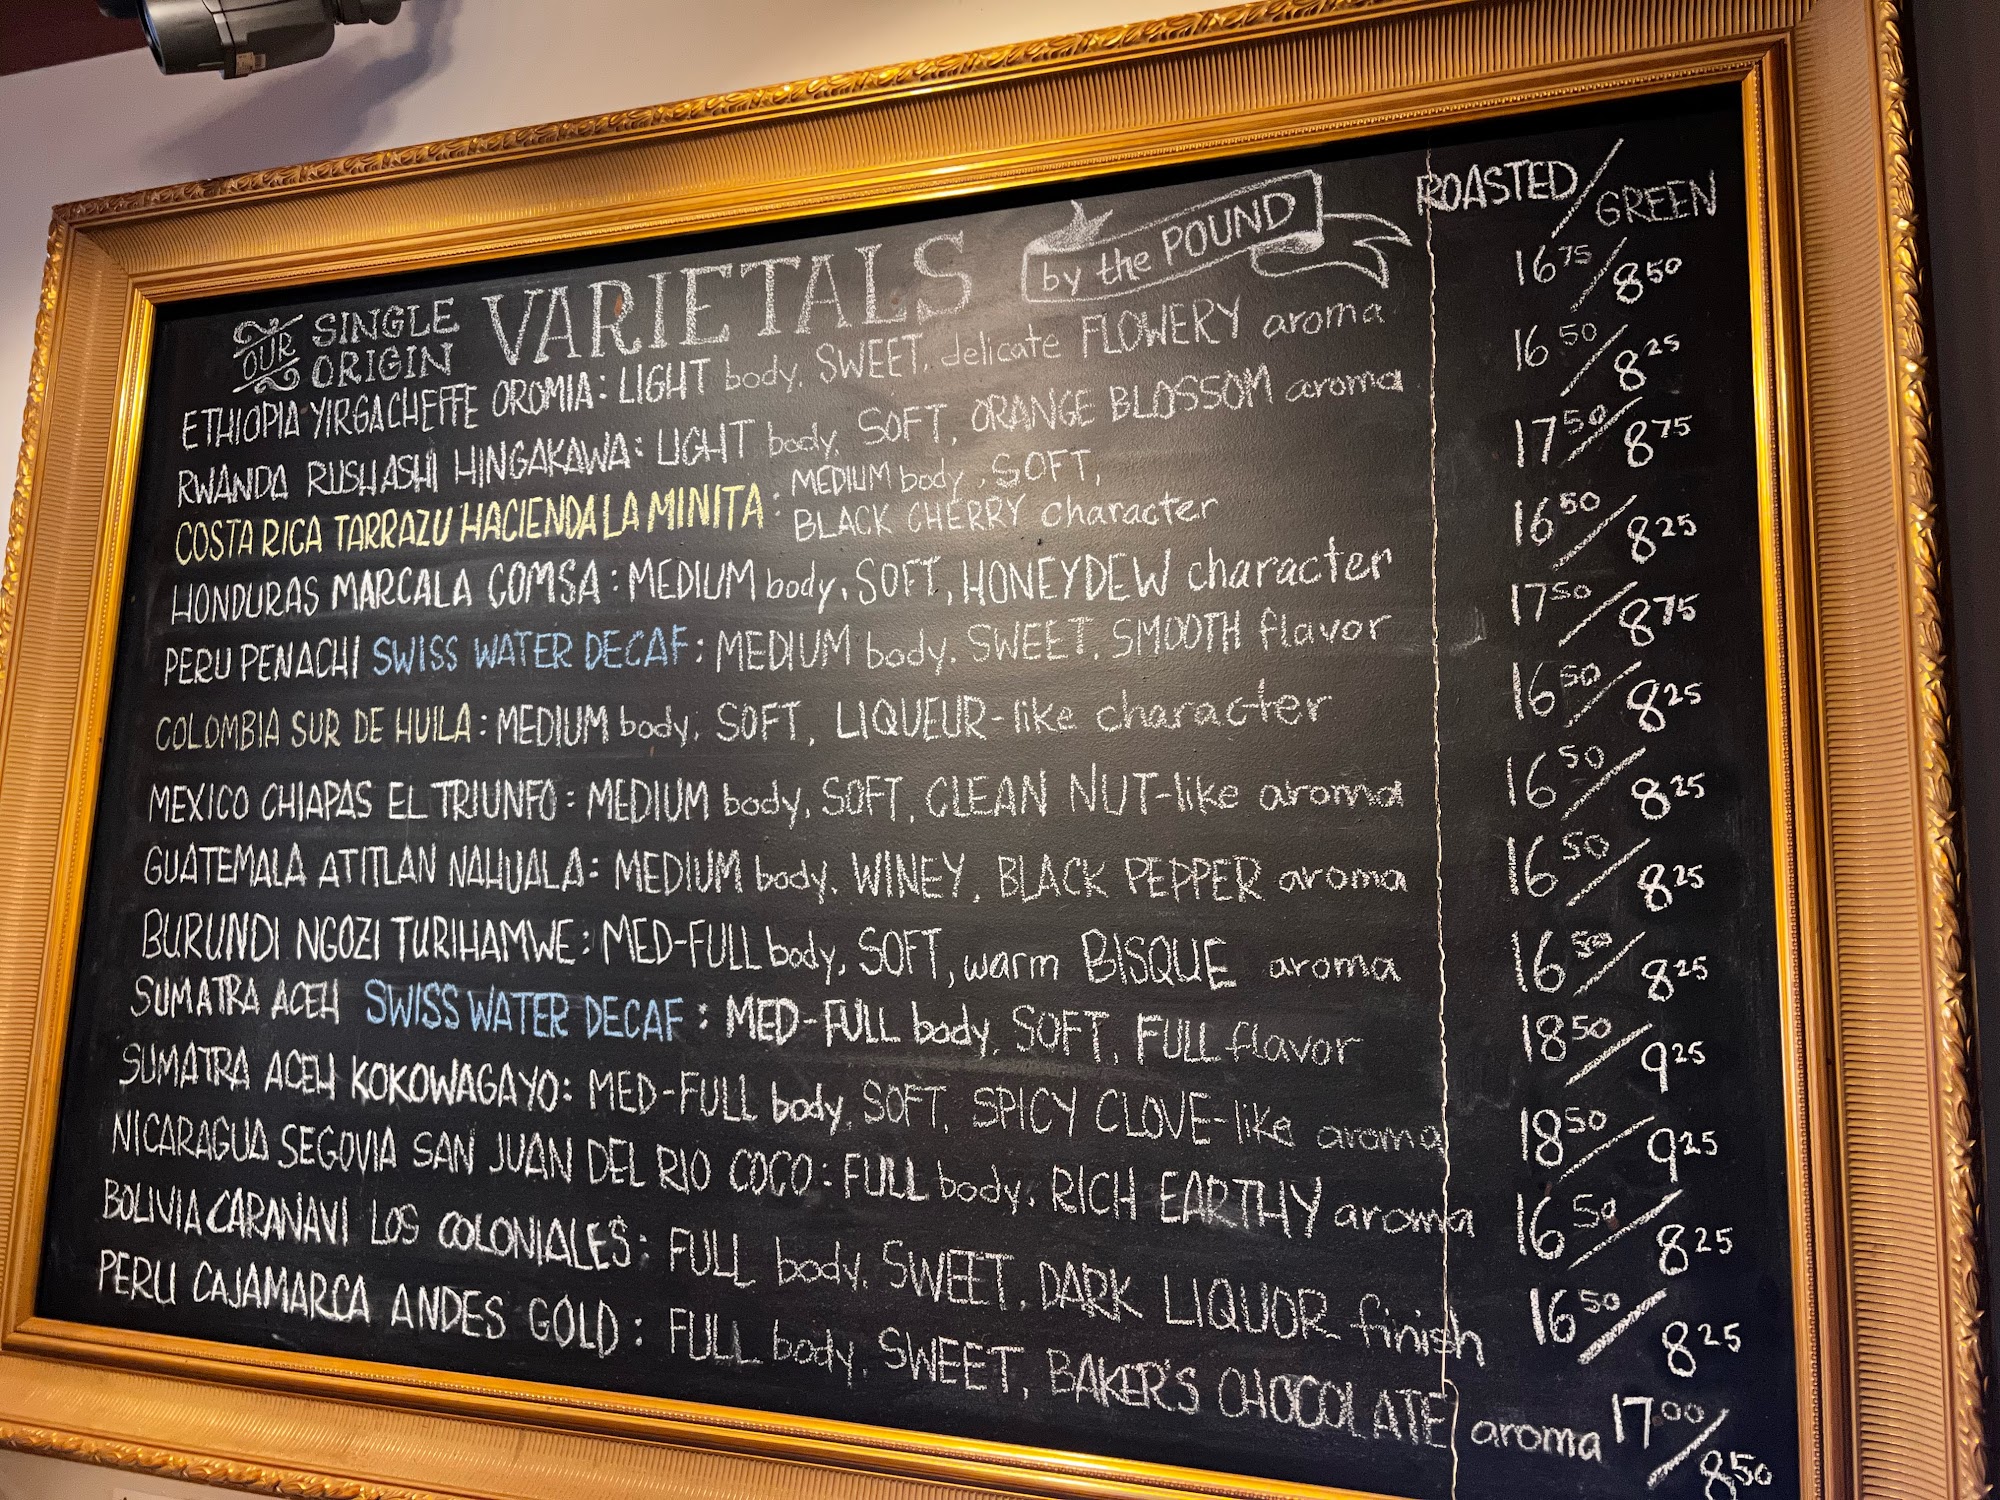 OUR SINGLE ORIGIN VARIETALS by the POUND ROASTED/GREEN
ETHIOPIA YIRGACHEFFE OROMIA: LIGHT body, SWEET, delicate FLOWERY aroma 16 75/8 50
RWANDA RUSHASHI HINGAKAWA: LIGHT body, SOFT, ORANGE BLOSSOM aroma 16 50/8 25
COSTA RICA TARRAZU HACIENDA LA MINITA: MEDIUM body, SOFT,
BLACK CHERRY character 17 50/8 75
HONDURAS MARCALA COMSA: MEDIUM body, SOFT, HONEYDEW character 16 50/8 25
PERU PENACHI SWISS WATER DECAF: MEDIUM body, SWEET, SMOOTH flavor 17 50/8 75
COLOMBIA SUR DE HUILA: MEDIUM body, SOFT, LIQUEUR-like character 16 50/8 25
MEXICO CHIAPAS EL TRIUNFO: MEDIUM body, SOFT, CLEAN NUT-like aroma 16 50/8 25
GUATEMALA ATITLAN NAHUALA: MEDIUM body, WINEY, BLACK PEPPER aroma 16 50/8 25
BURUNDI NGOZI TURIHAMWE: MED-FULL body, SOFT, warm BISQUE aroma 16 50/8 25
SUMATRA ACEH SWISS WATER DECAF: MED-FULL body, SOFT, FULL flavor 18 50/9 25
SUMATRA ACEH KOKOWAGAYO: MED-FULL body, SOFT, SPICY CLOVE-like aroma 18 50/9 25
NICARAGUA SEGOVIA SAN JUAN DEL RIO COCO: FULL body, RICH EARTHY aroma 16 50/8 25
BOLIVIA CARANAVI LOS COLONIALES: FULL body, SWEET, DARK LIQUOR finish 16 50/8 25
PERU CAJAMARCA ANDES GOLD: FULL body, SWEET, BAKER'S CHOCOLATE aroma 17.00/8 50